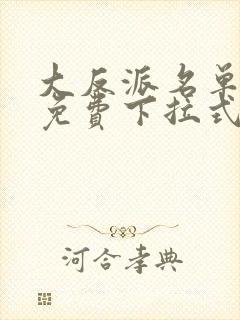 大反派名单
免费下拉式
河合孝典